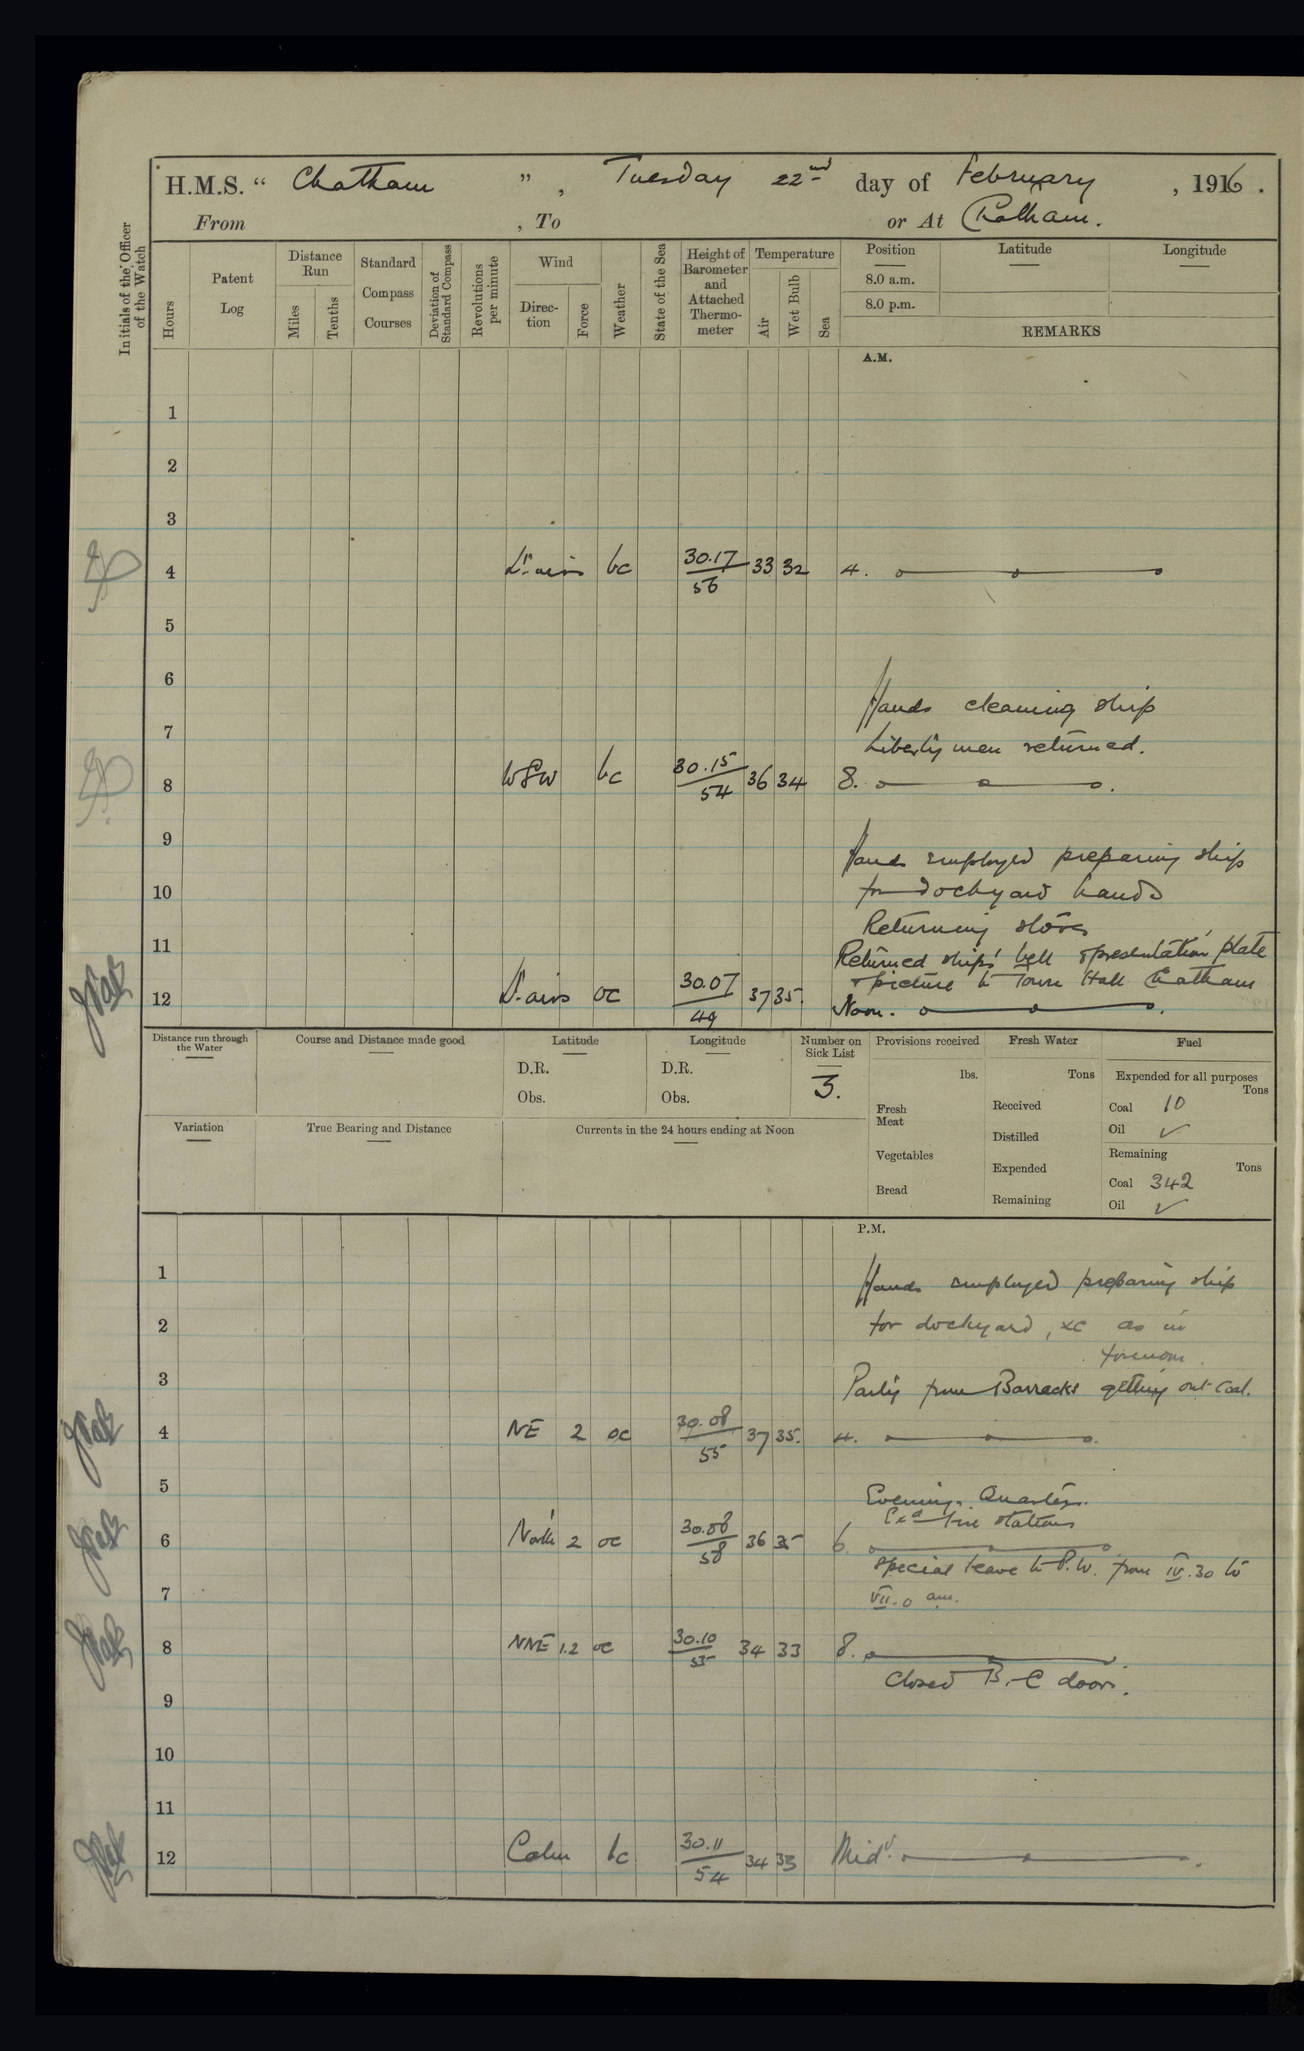 H.M.S. “ Chatham ” , Tuesday 22nd day of February , 1916 .
From , To or At Chatham.
Initials of the Officer of the Watch
Hours
Patent Log
Distance Run
Miles
Tenths
Standard Compass Courses
Deviation of Standard Compass
Revolutions per minute
Wind
Direction
Force
Weather
State of the Sea
Height of Barometer and Attached Thermometer
Temperature
Air
Wet Bulb
Sea
Position Latitude Longitude
8.0 a.m.
8.0 p.m.
REMARKS
A.M.
1
2
3
4 Lt airs bc 30.17 56 33 32 4.
5
6
Hands cleaning ship
7
Liberty men returned.
8 WSW bc 30.15 54 36 34 8.
9
Hands employed preparing ship
10 for dockyard hands
Returning stores
11 Returned ships' bell & presentation plate
& picture to Town Hall Chatham
12 Lt airs oc 30.07 49 37 35. Noon.
Distance run through the Water
Course and Distance made good
Latitude
D.R.
Obs.
Longitude
D.R.
Obs.
Number on Sick List
3.
Provisions received
lbs.
Fresh Meat
Vegetables
Bread
Fresh Water
Tons
Received
Distilled
Expended
Remaining
Fuel
Expended for all purposes
Tons
Coal 10
Oil ✓
Remaining
Tons
Coal 342
Oil ✓
Variation
True Bearing and Distance
Currents in the 24 hours ending at Noon
P.M.
1 Hands employed preparing ship
2 for dockyard, &c as in
forenoon.
3 Party from Barracks getting out coal.
4 NE 2 oc 30.08 55 37 35. 4.
5 Evening Quarters.
Exd fire stations
6 North 2 oc 30.08 58 36 35 6.
special leave to P.W. from IV.30 to
7 VII.0 am.
8 NNE 1.2 oc 30.10 55 34 33 8.
Closed B.-C doors.
9
10
11
12 Calm bc 30.11 54 34 33 Midt.